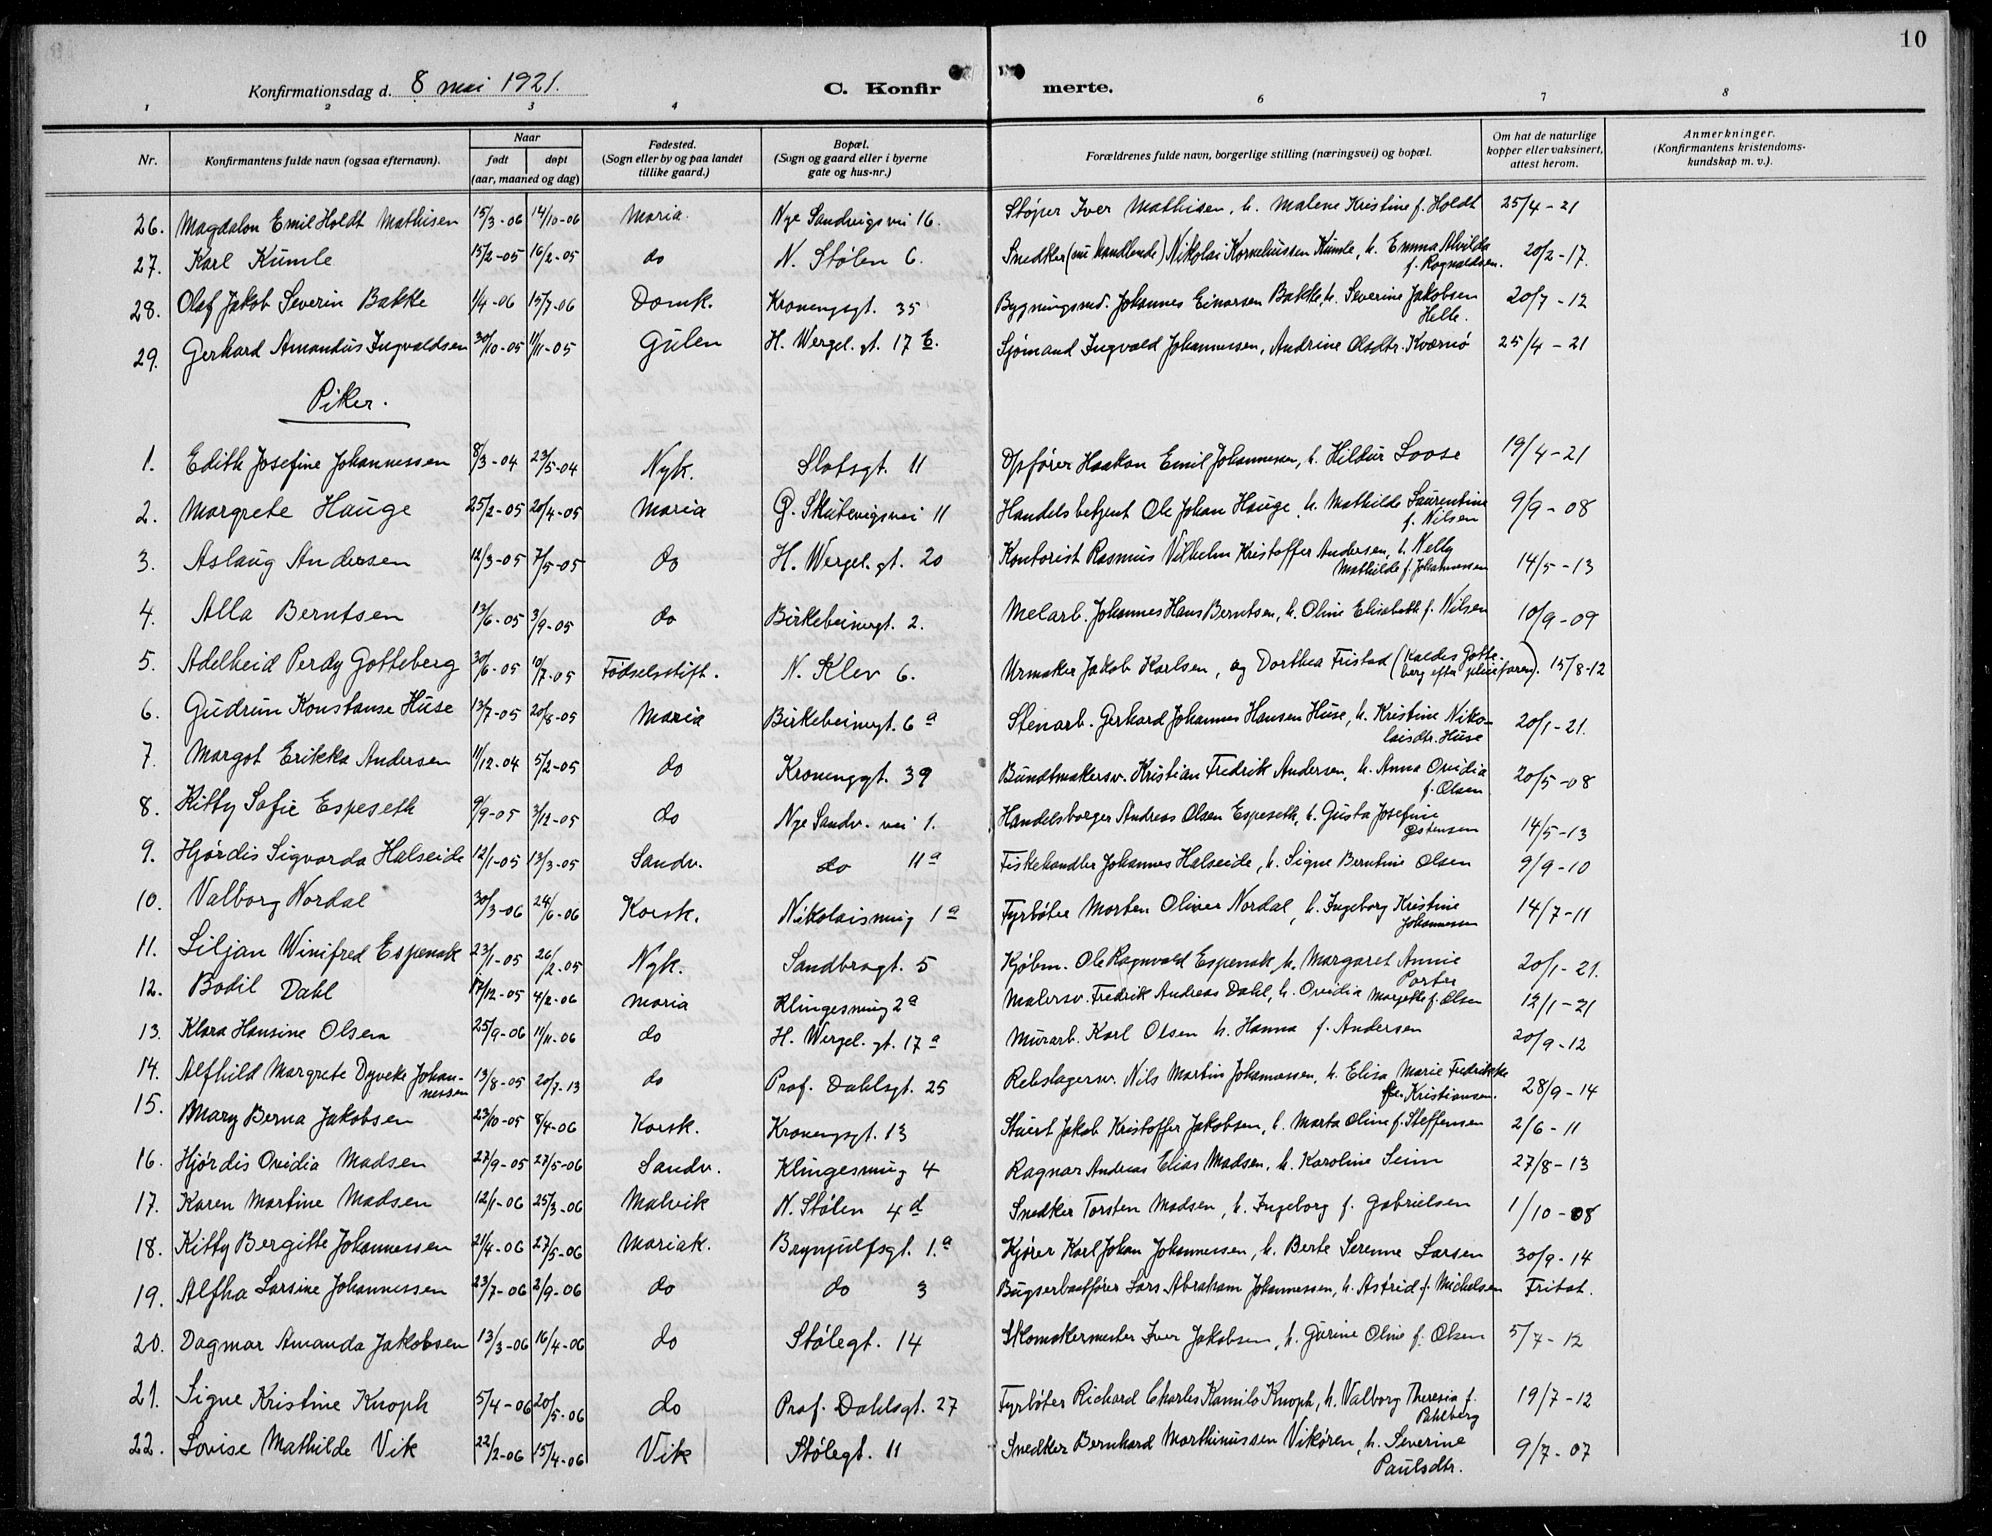 10
Konfirmationsdag d. 8 mai 1921.
C. Konfirmerte.
1 2 3 4 6 7 8
Nr. | Konfirmantens fulde navn (ogsaa efternavn). | Naar født | døpt (aar, maaned og dag) | Fødested. (Sogn eller by og paa landet tillike gaard.) | Bopæl. (Sogn og gaard eller i byerne gate og hus-nr.) | Forældrenes fulde navn, borgerlige stilling (næringsvei) og bopæl. | Om hat de naturlige kopper eller vaksinert, attest herom. | Anmerkninger. (Konfirmantens kristendomskundskap m. v.).
26. Magdalon Emil Holdt Mathisen 15/3-06 14/10-06 Maria. Nye Sandvigsvei 16. Støper Iver Mathisen, h. Malene Kristine f. Holdt 25/4-21
27. Karl Kumle 15/2-05 16/2-05 do N. Stølen 6. Snedker (nu handlende) Nikolai Korneliussen Kumle, h. Emma Alvilda f. Ragnvaldsen. 20/2-17.
28. Olaf Jakob Severin Bakke 1/4-06 15/7-06 Domk. Kronengsgt. 35 Bygningssnd. Johannes Einarsen Bakke, h. Severine Jakobsen Helle. 20/7-12
29. Gerhard Amandus Ingvaldsen 30/10-05 11/11-05 Gulen H. Wergel. gt. 17 E. Sjømand Ingvald Johannessen, Andrine Olsdtr. Kværnø 25/4-21
Piker.
1. Edith Josefine Johannessen 8/3-04 23/5-04 Nyk. Slotsgt. 11 Opfører Haakon Emil Johannessen, h. Hildur Loose 19/4-21
2. Margrete Hauge 25/2-05 20/4-05 Maria G. Skutevigsvei 11 Handelsbetjent Ole Johan Hauge, h. Mathilde Laurentine f. Nilsen 9/9-08
3. Aslaug Andersen 12/3-05 7/5-05 do H. Wergel. gt. 20 Kontorist Rasmus Vilhelm Kristoffer Andersen, h. Nelly Mathilde f. Johannessen 14/5-13
4. Alla Berntsen 13/6-05 3/9-05 do Birkebeinergt. 2. Melarb. Johannes Hans Berntsen, h. Oline Elisabeth f. Nilsen 10/9-09
5. Adelheid Perdy Gotteberg 30/6-05 10/7-05 Fødselsstift. N. Klev 6. Urmaker Jakob Karlsen, og Dorthea Fristad (kaldes Gotteberg efter pleiefaren). 15/8-12
6. Gudrun Konstanse Huse 13/7-05 20/8-05 Maria Birkebeinergt. 6a Stenarb. Gerhard Johannes Hansen Huse, h. Kristine Nikolaisdtr. Huse 20/1-21.
7. Margot Erikka Andersen 11/12-04 5/2-05 do Kronenggt. 39 Bundtmakersv. Kristian Fredrik Andersen, h. Anna Ovidia f. Olsen 20/5-08
8. Kitty Sofie Espeseth 9/9-05 3/12-05 do Nye Sandv. vei 1. Handelsborger Andreas Olsen Espeseth, h. Gusta Josefine Østensen 14/5-13
9. Hjørdis Sigvarda Halseide 12/1-05 13/3-05 Sandv. do 11a Fiskehandler Johannes Halseide, h. Signe Berntine Olsen 9/9-10
10. Valborg Nordal 30/3-06 24/6-06 Korsk. Nikolaismug 1a Fyrbøter Morten Oliver Nordal, h. Ingeborg Kristine Johannessen 14/7-11
11. Liljan Winifred Espenak 23/1-05 26/2-05 Nyk. Sandbrogt. 5 Kjøbm. Ole Ragnvald Espenak, h. Margaret Annie Porter 20/1-21.
12. Bodil Dahl 17/12-05 4/2-06 Maria Klingesmug 2a Malersv. Fredrik Andreas Dahl, h. Ovidia Margrethe f. Olsen 12/1-21
13. Klara Hansine Olsen 25/9-06 11/11-06 do H. Wergel. gt. 17a Murarb. Karl Olsen h. Hanna f. Andersen 20/9-12
14. Alfhild Margrete Dyveke Johannessen 13/8-05 20/7-13 do Prof. Dahlsgt. 25 Rebslagersv. Nils Martin Johannessen, h. Elisa Marie Fredrikke f. Kristiansen. 28/9-14
15. Mary Berna Jakobsen 23/10-05 8/4-06 Korsk. Kronengsgt. 13 Stuert Jakob Kristoffer Jakobsen, h. Marta Oline f. Steffensen 2/6-11
16. Hjørdis Ovidia Madsen 27/9-05 27/5-06 Sandv. Klingesmug 4 Ragnar Andreas Elias Madsen, h. Karoline Seim 27/8-13
17. Karen Martine Madsen 12/1-06 25/3-06 Malvik N. Stølen 4d Snedker Torsten Madsen, h. Ingeborg f. Gabrielsen 1/10-08
18. Kitty Bergitte Johannessen 21/4-06 27/5-06 Mariak. Brynjulfsgt. 1.a Kjører Karl Johan Johannessen, h. Berte Serenne Larsen 30/9-14
19. Alfha Larsine Johannessen 23/7-06 2/9-06 do do 3 Bugserbaatfører Lars Abraham Johannessen, h. Astrid f. Michelsen Fritat.
20. Dagmar Amanda Jakobsen 13/3-06 16/4-06 do Stølegt. 14 Skomakermester Iver Jakobsen, h. Gurine Oline f. Olsen 5/7-12
21. Signe Kristine Knoph 5/4-06 20/5-06 do Prof. Dahlsgt. 27 Fyrbøter Richard Charles Kamilo Knoph, h. Valborg Theresia f. Pahlberg 19/7-12
22. Lovise Mathilde Vik 22/2-06 15/4-06 Vik Stølegt. 11 Snedker Bernhard Marthinussen Vikøren, h. Severine Paulsdtr. 9/7-07